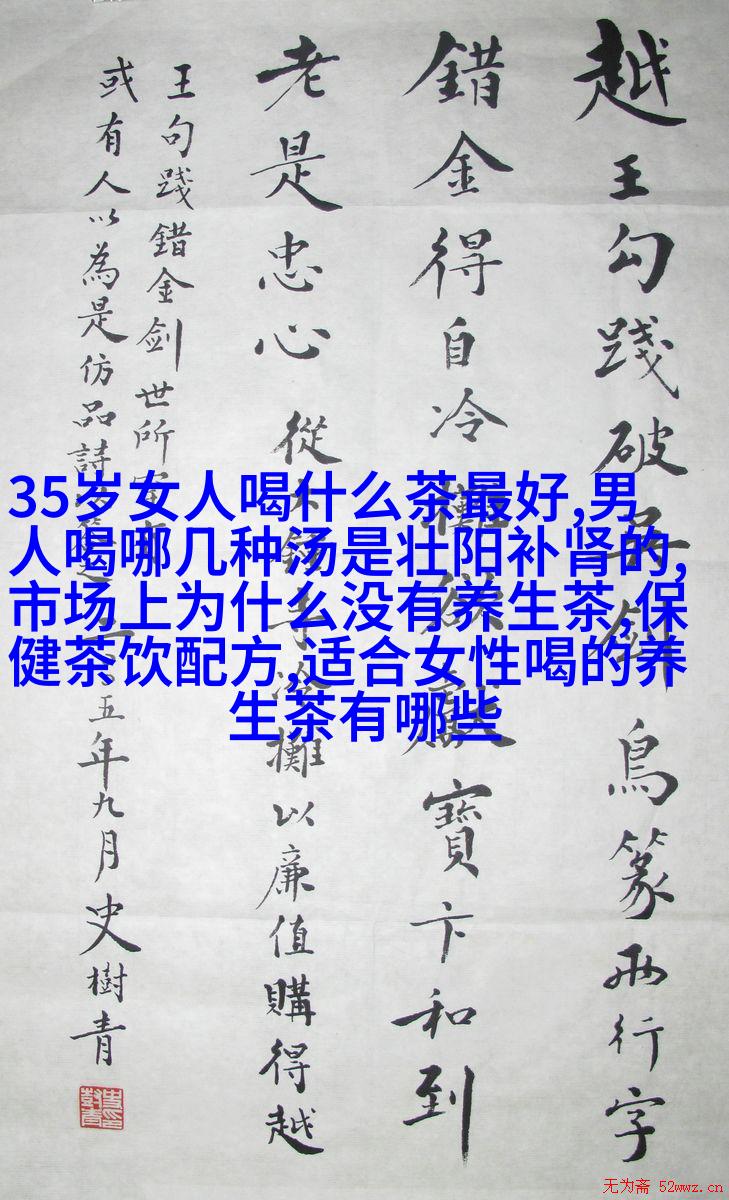 越王勾踐破吳劍鳥篆兩行字
錯金得自冷獻寶卞和到
老是忠心 從冷攤以廉值購得越
王句踐錯金剑世所
或有人以為是仿品詩五年九月史樹青
35岁女人喝什么茶最好,男
人喝哪几种汤是壮阳补肾的,
市场上为什么没有养生茶,保
健茶饮配方,适合女性喝的养
生茶有哪些
无为斋 52wwz.cn